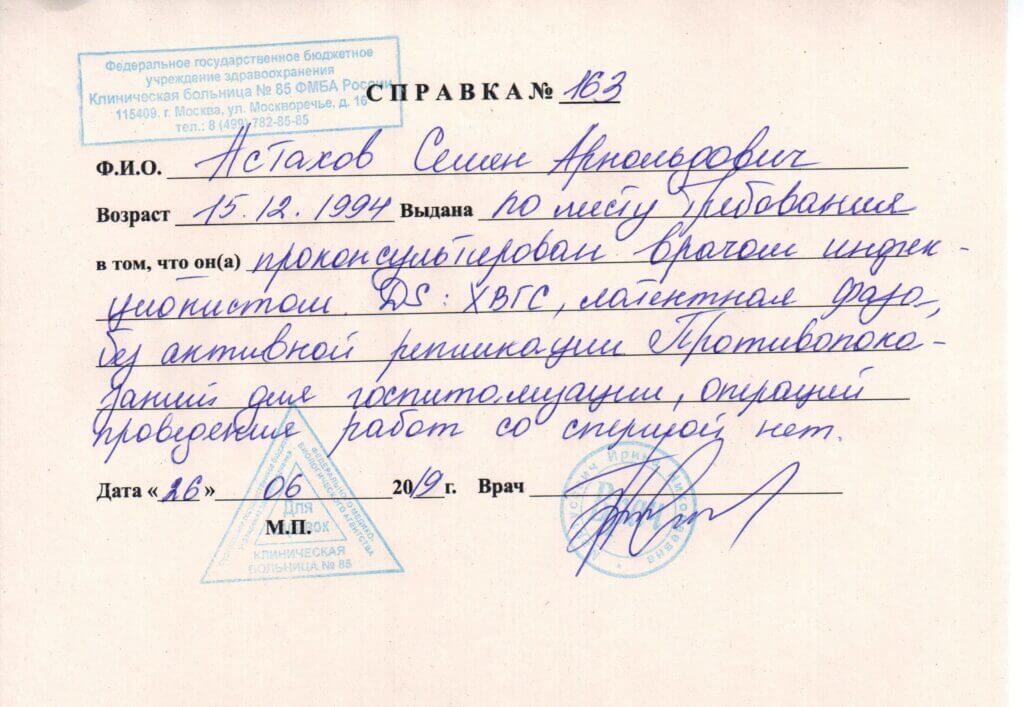 Федеральное государственное бюджетное
учреждение здравоохранения
Клиническая больница № 85 ФМБА России
115409, г. Москва, ул. Москворечье, д. 16
тел.: 8 (499) 782-85-85
СПРАВКА № 163
Ф.И.О. Астахов Семен Арнольдович
Возраст 15.12.1994 Выдана по месту требования
в том, что он(а) проконсультирован врачом инфек-
ционистом. DS: ХВГС, латентная фаза,
без активной репликации Противопока-
заний для госпитализации, операций
проведения работ со спермой нет.
Дата «26» 06 2019 г. Врач
М.П.
Для
справок
КЛИНИЧЕСКАЯ
БОЛЬНИЦА № 85
ФЕДЕРАЛЬНОГО МЕДИКО-
БИОЛОГИЧЕСКОГО АГЕНТСТВА
Ирина Николаевна
Врач